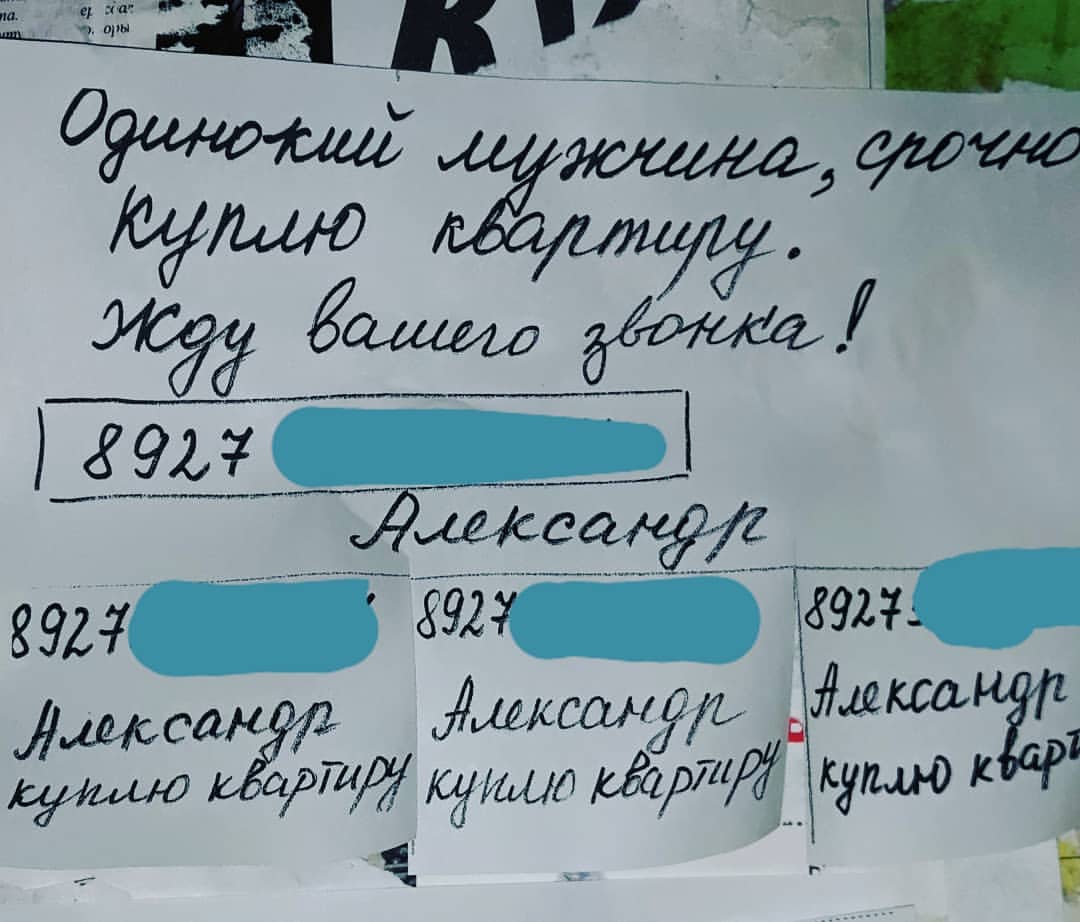 Одинокий мужчина, срочно
куплю квартиру.
Жду вашего звонка!
8927
Александр
8927
Александр
куплю квартиру
8927
Александр
куплю квартиру
8927
Александр
куплю кварт